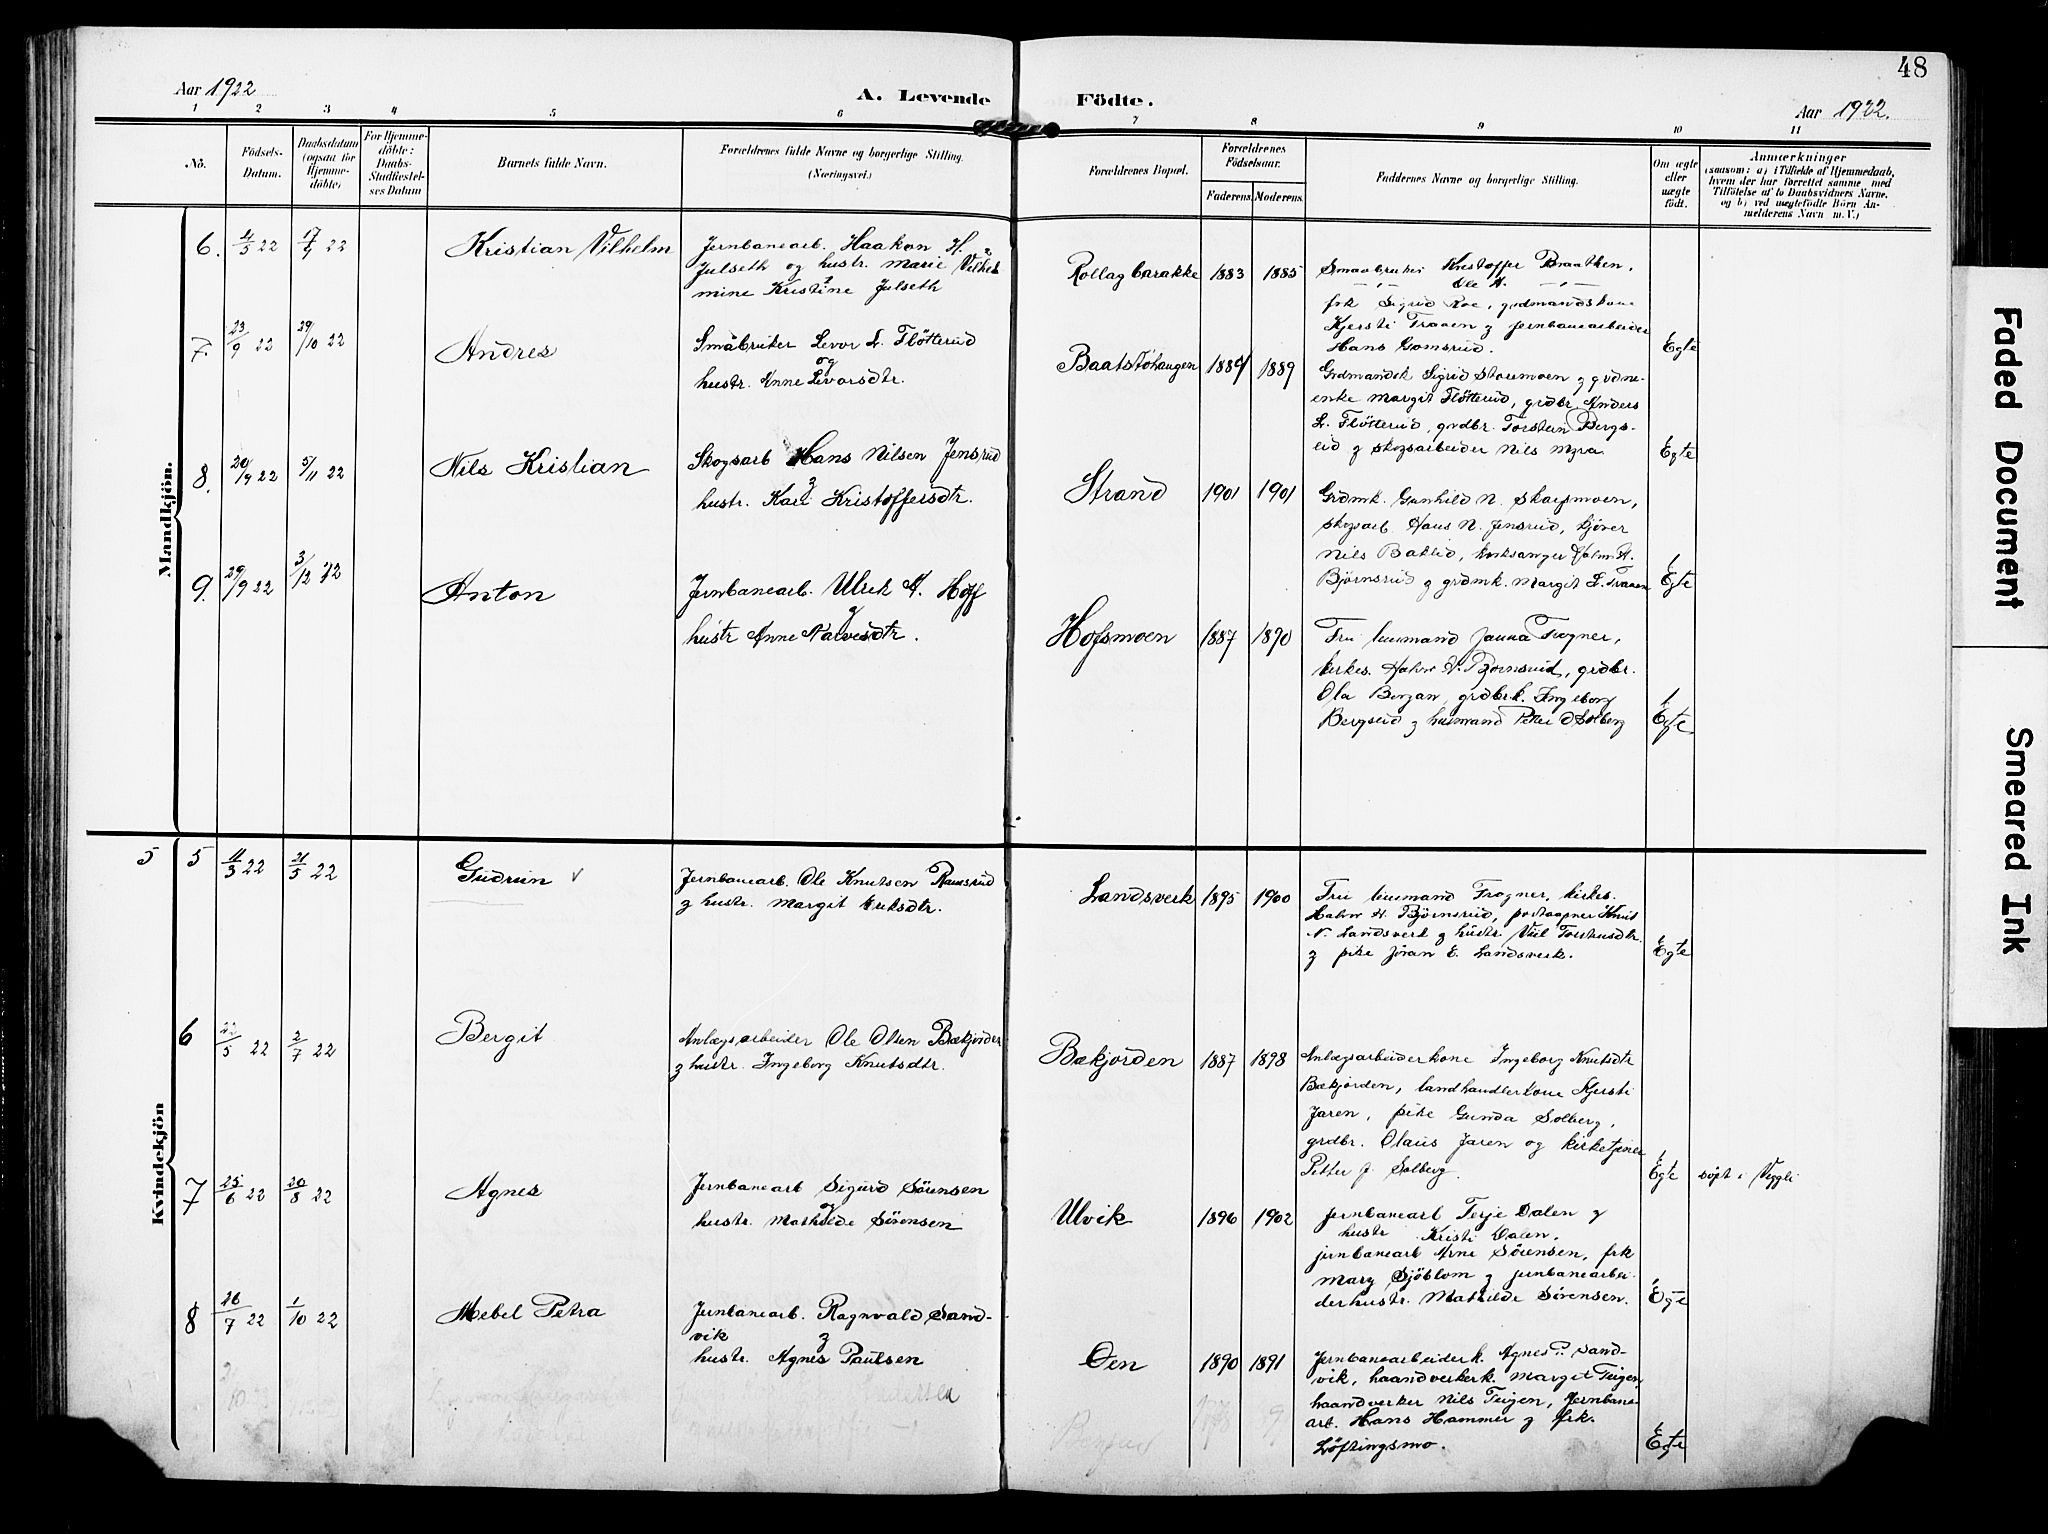 48
Aar 1922
A. Levende Födte.
Aar 1922.
1 2 3 4 5 6 7 8 9 10 11
No.
Födsels-Datum.
Daabsdatum (ogsaa för Hjemmedöbte)
For Hjemmedöbte: Daabs-Stadfæstelses Datum
Barnets fulde Navn.
Forældrenes fulde Navne og borgerlige Stilling.
(Næringsvei.)
Forældrenes Bopæl.
Forældrenes Födselsaar.
Faderens Moderens
Faddernes Navne og borgerlige Stilling.
Om ægte eller uægte födt.
Anmærkninger
(saasom: a) i Tilfælde af Hjemmedaab,
hvem der har forrettet samme med
Tilföielse af to Daabsvidners Navne.
og b) ved uægtefödte Börn An-
melderens Navn m. V.)
Mandkjön.
6. 4/5 22 Kristian Vilhelm
Jernbanearb. Haakon H.
Julseth og hustr. Marie Vilhel
mine Kristine Julseth
Rollag barakke 1883 1885
Smaabruker Kristoffer Braathen,
Ole H.
frk Sigrid Roe, grdmandskone
Kjersti Traaen & jernbanearbeider
Hans Gomsrud.
Egte
7. 23/9 22 29/10 22 Andres
Småbruker Levor L. Fløtterud
og
hustr. Anne Levorsdtr.
Baatstøhaugen 1889 1889
Grdmandsk Sigrid Storemoen & grdm-
enke Margit Fløtterud, grdbr. Anders
L. Fløtterud, grdbr. Torstein Bergs-
eid & skogsarbeider Nils Myra.
Egte
8. 20/9 22 5/11 22 Nils Kristian
Skogsarb Hans Nilsen Jensrud
&
hustr. Kari Kristoffersdtr.
Strand 1901 1901
Grdmk. Gunhild N. Skarpmoen,
skogsarb Hans N. Jensrud, kjører
Nils Baklid, kirksanger Halvor H.
Bjørnsrud & grdmk. Margit L. Traaen
Egte
9. 29/9 22 3/12 22 Anton
Jernbanearb. Ulrik A. Hoff
&
hustr Anne Narvesdtr.
Hofsmoen 1887 1890
Fru lensmand Janna Frogner,
kirkes. Halvor H. Bjørnsrud, grdbr.
Ola Bergan, grdbrk. Ingeborg
Bergseid & husmand Petter J Solberg
Egte
Kvindekjön
5 5 11/3 22 21/5 22 Gudrun
Jernbanearb. Ole Knutsen Ramsrud
& hustr. Margit Eriksdtr.
Landsverk 1895 1900
Fru lensmand Frogner, kirkes.
Halvor H. Bjørnsrud, postaapner Knut
N. Landsverk & hustr.
& pike Jøran E. Landsverk.
Egte
6 22/5 22 2/7 22 Bergit
Anlægsarbeider Ole Olsen Bækjorden
& hustr. Ingeborg Knutsdtr.
Bækjorden 1887 1898
Anlægsarbeiderkone Ingeborg Knutsdtr
Bækjorden, landhandlerkone Kjersti
Jaren, pike Gunda Solberg,
grdbr. Olaus Jaren og kirketjener
Petter J. Solberg.
Egte døpt i Veggli
7 25/6 22 20/8 22 Agnes
Jernbanearb Sigurd Sørensen
og
hustr. Mathilde Sørensen
Ulvik 1896 1902
Jernbanearb Terje Dalen &
hustr Kristi Dalen,
jernbanearb Arne Sørensen, frk
Mary Sjöblom & jernbanearbei-
derhustr. Mathilde Sørensen.
Egte
8 26/7 22 1/10 22 Mebel Petra
Jernbanearb. Ragnvald Sand-
vik &
hustr. Agnes Paulsen
Øen 1890 1891
Jernbanearbeiderk. Agnes P. Sand-
vik, haandverkerk. Margit Teigen,
haandverker Nils Teigen, Jernbane-
arb. Hans Hammer & frk.
Løftingsmo.
Egte
Faded Document
Smeared Ink